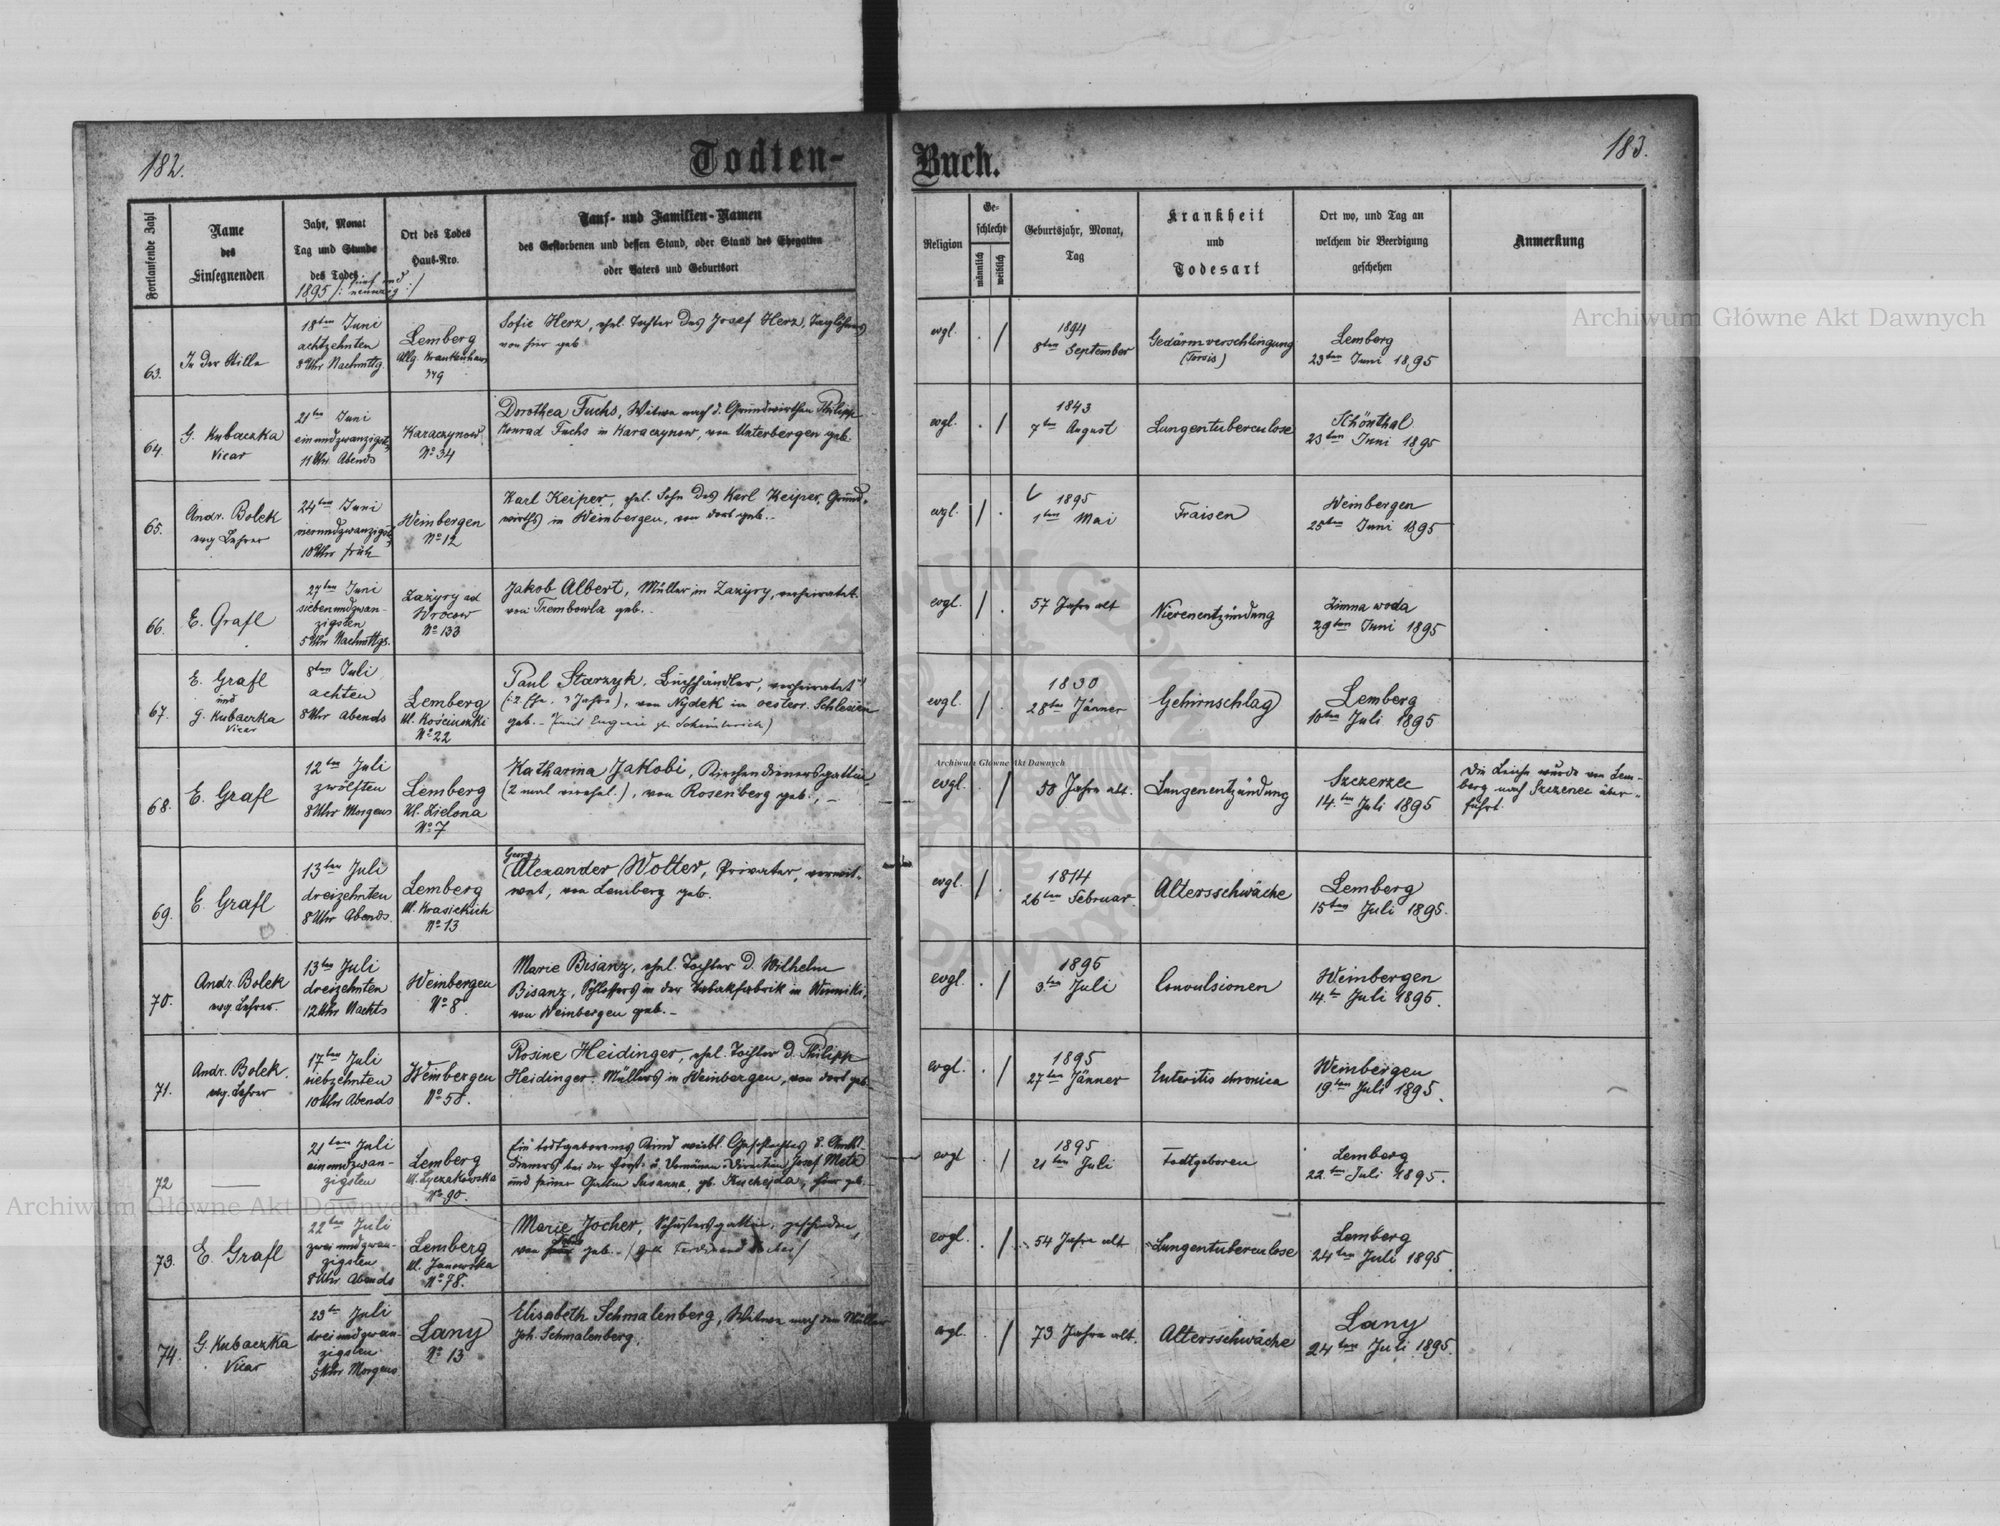 182.
Todten-
Fortlaufende Zahl
Name
des
Einsegnenden
Jahr, Monat
Tag und Stunde
des Todes
1895 /: fünf und
neunzig :/
Ort des Todes
Haus-Nro.
Tauf- und Familien-Namen
des Gestorbenen und dessen Stand, oder Stand des Ehegatten
oder Vaters und Geburtsort
63.
In der Stille
18ten Juni
achtzehnten
8 Uhr Nachmttg.
Lemberg
Allg. Krankenhaus
Sofie Herz, ehel. Tochter des Josef Herz, Taglöhners
von hier geb.
64.
G. Kubaczka
Vicar
21ten Juni
einundzwanzigst.
11 Uhr Abends
Karaczynow
No 34
Dorothea Fuchs, Witwe nach d. Grundwirthen Philipp
Konrad Fuchs in Karaczynow, von Unterbergen geb.
65.
Andr. Bolek
evg. Lehrer
24ten Juni
vierundzwanzigst.
10 Uhr früh
Weinbergen
No 12
Karl Keiper, ehel. Sohn des Karl Keiper, Grund-
wirths in Weinbergen, von dort geb.-
66.
E. Grafl
27ten Juni
siebenundzwan-
zigsten
5 Uhr Nachmttgs.
Zazyry ad
Wrocow
No 133
Jakob Albert, Müller in Zazyry, verheiratet
von Trembowla geb.-
67.
E. Grafl
und
G. Kubaczka
Vicar
8ten Juli
achten
8 Uhr abends
Lemberg
Ul. Kościuszki
No 22
Paul Starzyk, Buchhändler, verheiratet
von Nydek in oesterr. Schlesien
geb.-
68.
E. Grafl
12ten Juli
zwölften
8 Uhr Morgens
Lemberg
Ul. Zielona
No 7
Katharina Jakobi, Kirchendienersgattin,
(2 mal verehel.), von Rosenberg geb., -
69.
E. Grafl
13ten Juli
dreizehnten
8 Uhr Abends.
Lemberg
Ul. Krasickich
No 13
Georg
Alexander Wolter, Privater, verwit-
wet, von Lemberg geb.
70.
Andr. Bolek
evg. Lehrer.
13ten Juli
dreizehnten
12 Uhr Nachts
Weinbergen
No 8
Marie Bisanz, ehel. Tochter d. Wilhelm
Bisanz, Schlossers in der Tabakfabrik in Winniki,
von Weinbergen geb.-
71.
Andr. Bolek.
evg. Lehrer
17ten Juli
siebzehnten
10 Uhr Abends
Weinbergen
No 58.
Rosine Heidinger, ehel. Tochter d. Philipp
Heidinger, Müllers in Weinbergen, von dort geb.
72
21ten Juli
einundzwan-
zigsten
Lemberg
Ul. Łyczakowska
No 90.
Ein todtgeborenes Kind weibl. Geschlechtes d. Amts-
dieners bei der Forst- u. Domänen-Direction Josef Metz
und seiner Gattin Susanna, gb. Kuchejda, hier gb.
73.
E. Grafl
22ten Juli
zweiundzwan-
zigsten
8 Uhr Abends
Lemberg
Ul. Janowska
No 78.
Marie Jocher, Schustersgattin, geschieden,
von geb.- / Ferdinand Jocher /
74.
G. Kubaczka
Vicar
23ten Juli
dreiundzwan-
zigsten
5 Uhr Morgens
Lany
No 13
Elisabeth Schmalenberg, Witwe nach dem Müller
Joh. Schmalenberg.
183.
Buch.
Religion
Ge-
schlecht
männlich
weiblich
Geburtsjahr, Monat,
Tag
Krankheit
und
Todesart
Ort wo, und Tag an
welchem die Beerdigung
geschehen
Anmerkung
evgl. . /
1894
8ten September
Gedärmverschlingung
Lemberg
23ten Juni 1895
evgl. . /
1843
7ten August
Lungentuberculose
Schönthal
23ten Juni 1895
evgl. / .
1895
1ten Mai
Fraisen
Weinbergen
25ten Juni 1895
evgl. / .
57 Jahre alt
Nierenentzündung
Zimna woda
29ten Juni 1895
evgl. / .
1830
28ten Jänner
Gehirnschlag
Lemberg
10ten Juli 1895
evgl. . /
58 Jahre alt.
Lungenentzündung
Szczerzec
14.ten Juli 1895
Die Leiche wurde von Lem-
berg nach Szczerzec über-
führt.
evgl. / .
1814
26ten Februar
Altersschwäche
Lemberg
15ten Juli 1895.
evgl. . /
1895
3.ten Juli
Convulsionen
Weinbergen
14.tn Juli 1895.
evgl. . /
1895
27ten Jänner
Enteritis chronica
Weinbergen
19.ten Juli 1895.
evgl . /
1895
21ten Juli
Todtgeboren
Lemberg
22.ten Juli 1895.
evgl. . /
54 Jahre alt
Lungentuberculose
Lemberg
24ten Juli 1895
evgl. . /
73 Jahre alt.
Altersschwäche
Lany
24ten Juli 1895.
Archiwum Główne Akt Dawnych
Archiwum Główne Akt Dawnych
Archiwum Główne Akt Dawnych
Archiwum Główne Akt Dawnych